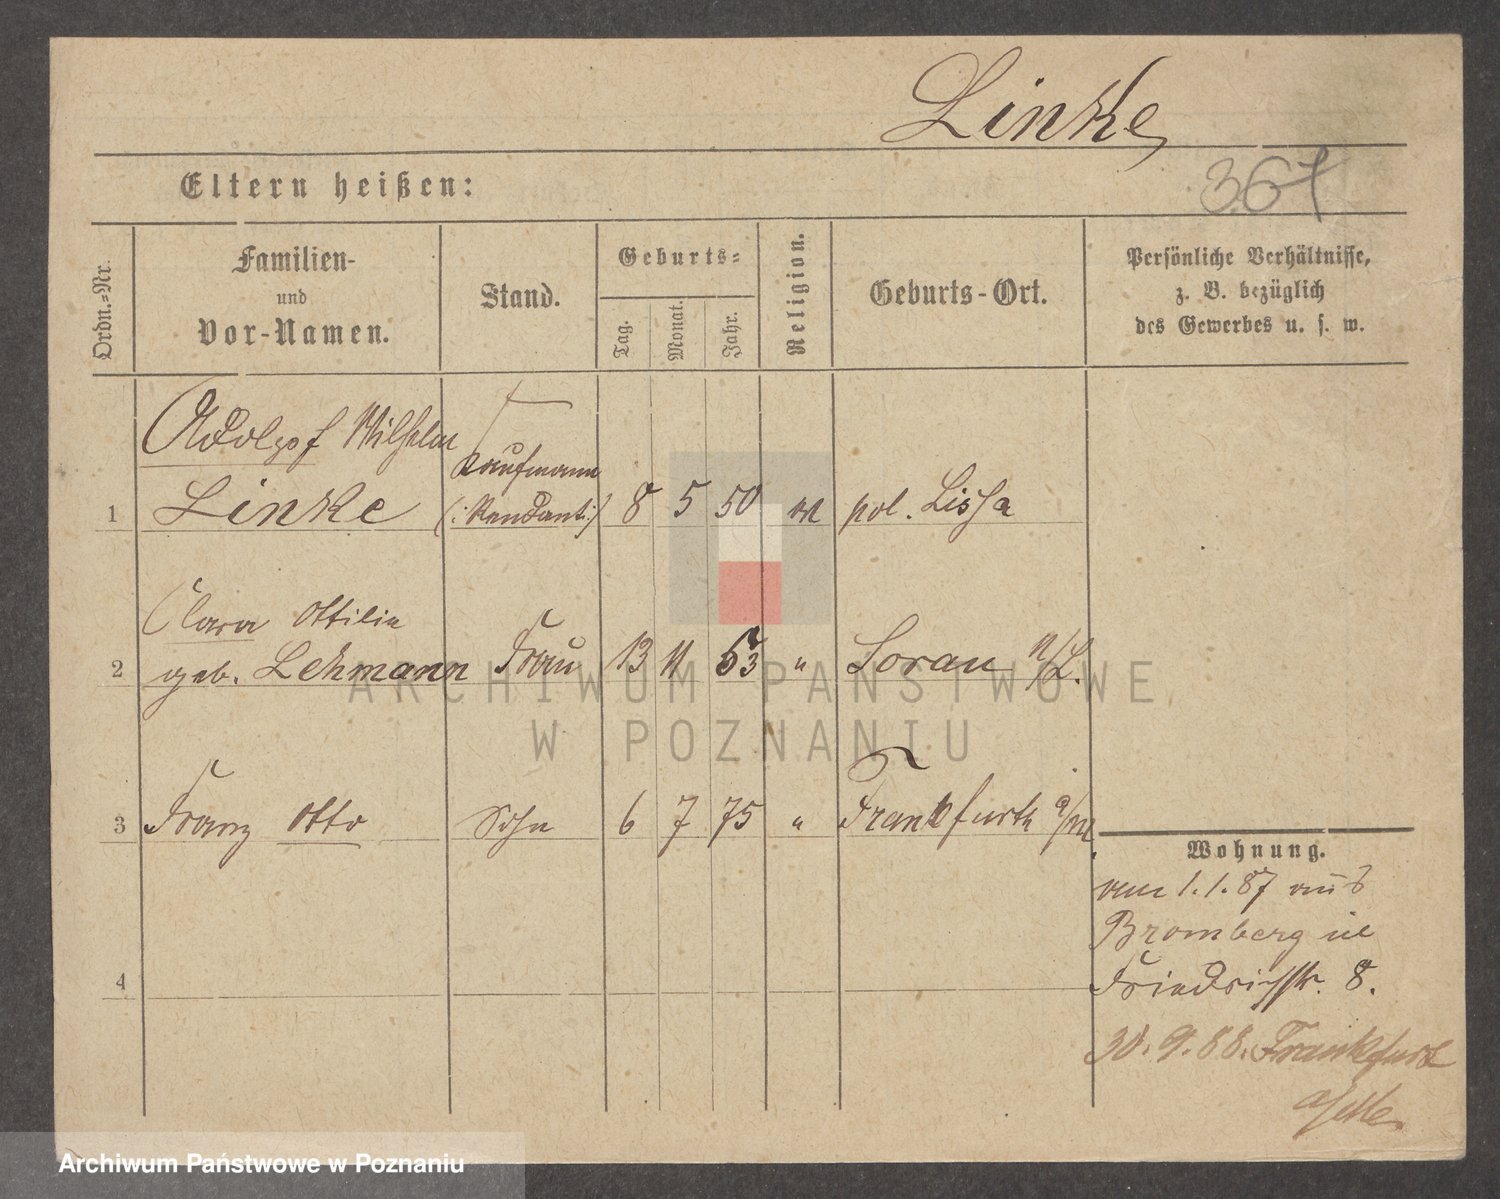 Linke
367
Eltern heißen:
Ordn.=Nr.
Familien-
und
Vor-Namen.
Stand.
Geburts=
Tag.
Monat.
Jahr.
Religion.
Geburts-Ort.
Persönliche Verhältnisse,
z. B. bezüglich
des Gewerbes u. s. w.
Adolph Wilhelm
Kaufmann
1 Linke (: Rendant :) 8 5 50 ev pol. Lissa
Clara Ottilie
2 geb. Lehmann Frau 13 11 53 " Sorau N/L.
3 Franz Otto Sohn 6 7 75 " Frankfurth a/M.
4
Wohnung.
am 1.1.87 aus
Bromberg in
Friedrichstr. 8.
30.9.88. Frankfurt
ARCHIWUM PAŃSTWOWE
W POZNANIU
Archiwum Państwowe w Poznaniu